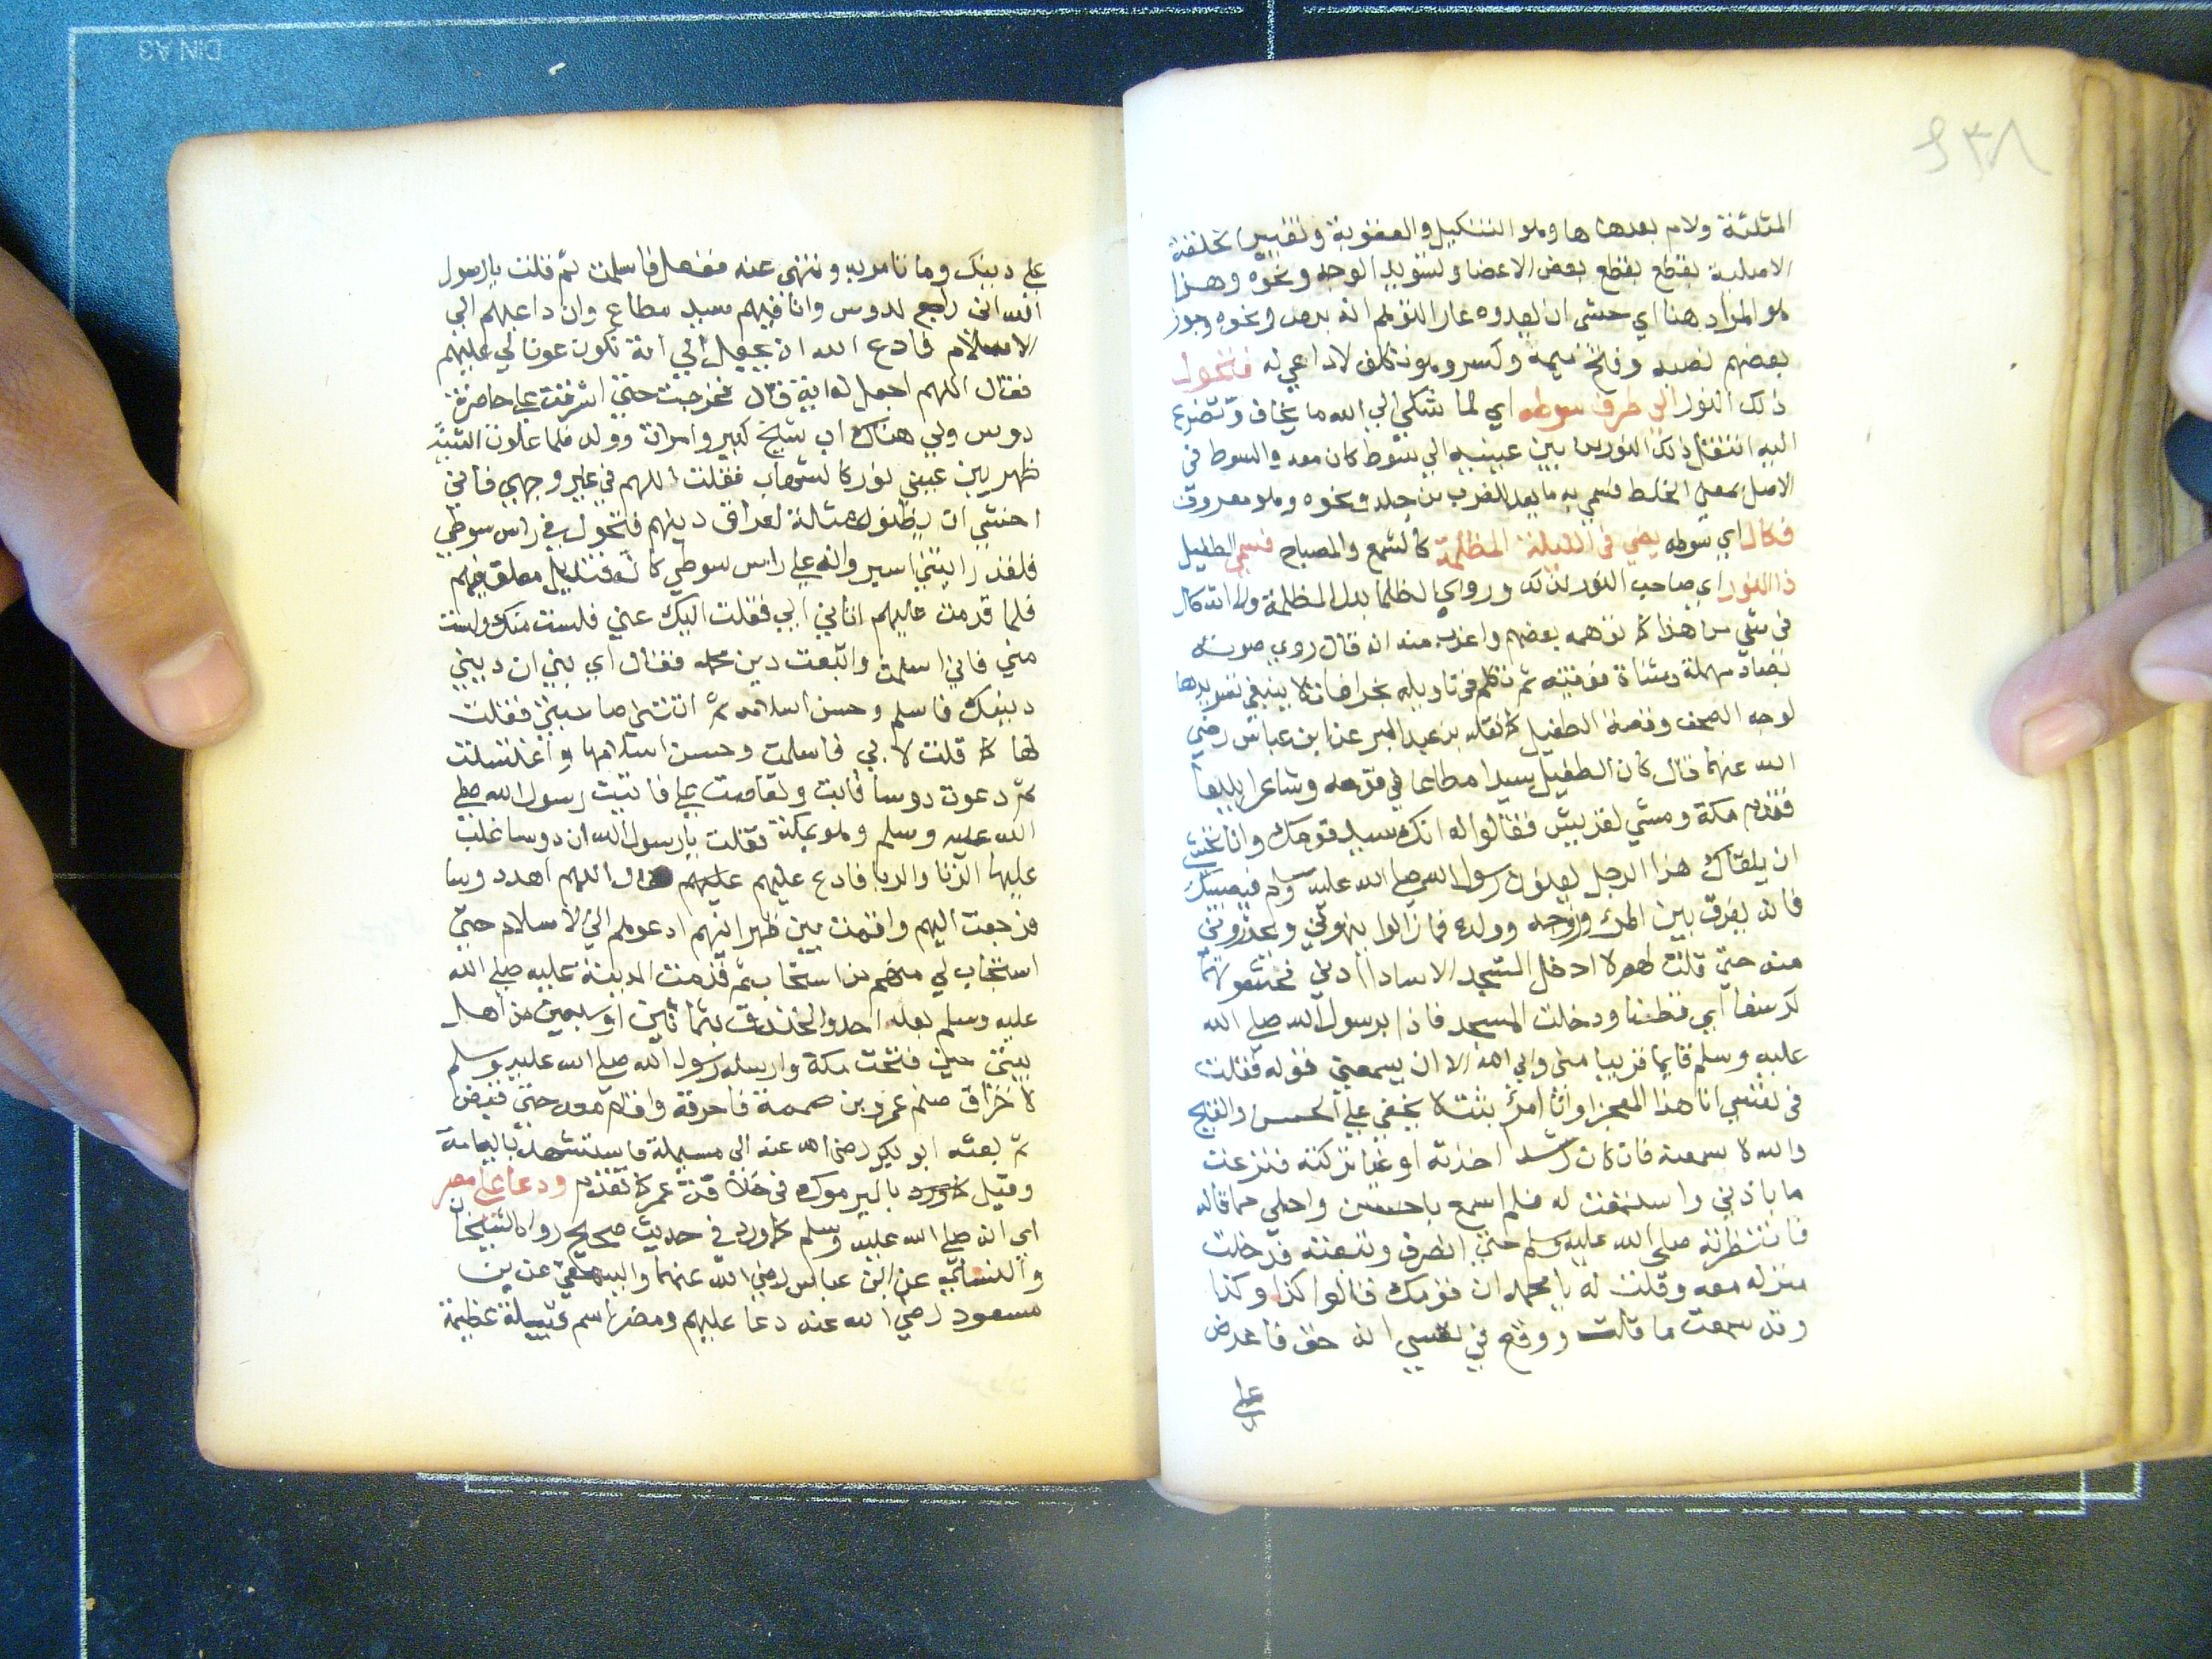 المثلثة ولام بعدها ها وهو التنكيل والعقوبة وتغيير الخلقة
الاصلية بقطع بعض الاعضا وتسويد الوجه ونحوه وهذا
هو المراد هنا اي خشي ان يعدوه عار الذو لهم انه برص ونحوه وجوز
بعضهم نصبه وفتح ميمه وكسر وهو تكلف لا داعي له فتحول
ذلك النور الى طرف سوطه اي لما شكى الى الله ما يخاف وتضرع
اليه انتقل ذلك النور من بين عينيه الى سوط كان معه والسوط في
الاصل بمعنى الخلط فسمي به ما يعد للضرب من جلد ونحوه وهو معروف
فكان اي سوطه يضي في الليلة المظلمة كالشمع والمصباح فسمي الطفيل
ذا النور اي صاحب النور لذلك وروي الظلما بدل المظلمة
في شي من هذا كما توهمه بعضهم واغرب منه ان قال روي صوته
بصاد مهملة ومثناة فوقية ثم تكلم في تاويله بخرافات لا ينبغي تسويدها
لوجه الصحف وقصة الطفيل كما نقله بن عبد البر عن ابن عباس رضي
الله عنهما قال كان الطفيل سيدا مطاعا في قومه وشاعرا بليغا
فقدم مكة ومشي لقريش فقالوا له انك سيد قومك وانا نخشى
ان يلقاك هذا الرجل يعنون رسول الله صلى الله عليه وسلم فيصيبك
فانه يفرق بين المرء وزوجه وولده فما زالوا ينهوني ويحذروني
منه حتى قلت لهم لا ادخل المسجد الا سادا اذني فحشوتهما
كرسفا اي قطنا ودخلت المسجد فاذا برسول الله صلى الله
عليه وسلم قايما قريبا مني وابى الله الا ان يسمعني قوله فقلت
في نفسي انا هذا المعجز او اني امرؤ بثت لا يخفي على الحسن والقبح
والله لا سمعنه فان كان رشدا اخذته او غيا تركته فنزعت
ما باذني واستمعت له فلم اسمع باحسن واحلى مما قاله
فانتظرته صلى الله عليه وسلم حتى انصرف وتبعته فدخلت
منزله معه وقلت له يا محمد ان قومك قالوا كذا وكذا
وقد سمعت ما قلت ووقع في نفسي انه حق فاعرض
علي
علي دينك وما تامر به وتنهى عنه ففعل فاسلمت ثم قلت يا رسول
الله اني راجع لدوس وانا فيهم سيد مطاع وان داعيهم الي
الاسلام فادع الله ان يجعل لي اية تكون عونا لي عليهم
فقال اللهم اجعل له اية قال فخرجت حتى اشرفت على حاضرة
دوس ولي هناك اب شيخ كبير وامراة وولد فلما علوت الثنية
ظهر بين عيني نور كالشهاب فقلت اللهم في غير وجهي فاني
اخشي ان يظنوه مثلة لفراق دينهم فتحول في راس سوطي
فلقد رايتني اسير وانه على راس سوطي كانه قنديل معلق فيهم
فلما قدمت عليهم اتاني ابي فقلت اليك عني فلست منك ولست
مني فاني اسلمت واتبعت دين محمد فقال اي بني ان ديني
دينك فاسلم وحسن اسلامه ثم اتتني صاحبتي فقلت
لها كما قلت لابي فاسلمت وحسن اسلامها واغتسلت
ثم دعوت دوسا فابت وتعاصت علي فاتيت رسول الله صلى
الله عليه وسلم وهو بمكة فقلت يا رسول الله ان دوسا غلب
عليها الزنا والربا فادع عليهم عليهم فقال اللهم اهد دوسا
فرجعت اليهم واقمت بين ظهرانيهم ادعوهم الى الاسلام حتى
استجاب لي منهم من استجاب ثم قدمت المدينة عليه صلى الله
عليه وسلم بعد احد والخندق بثمانين او سبعين من اهل
بيتي حتى فتحت مكة وارسله رسول الله صلى الله عليه وسلم
لاحراق صنم عمرو بن حممة فاحرقه واقام معه حتى قبض
ثم بعثه ابو بكر رضي الله عنه الى مسيلمة فاستشهد باليمامة
وقيل باليرموك في خلافة عمر كما تقدم ودعا على مضر
اي انه صلى الله عليه وسلم كما ورد في حديث صحيح رواه الشيخان
والنسائي عن ابن عباس رضي الله عنهما والبيهقي عن بن
مسعود رضي الله عنه دعا عليهم ومضر اسم قبيلة عظيمة